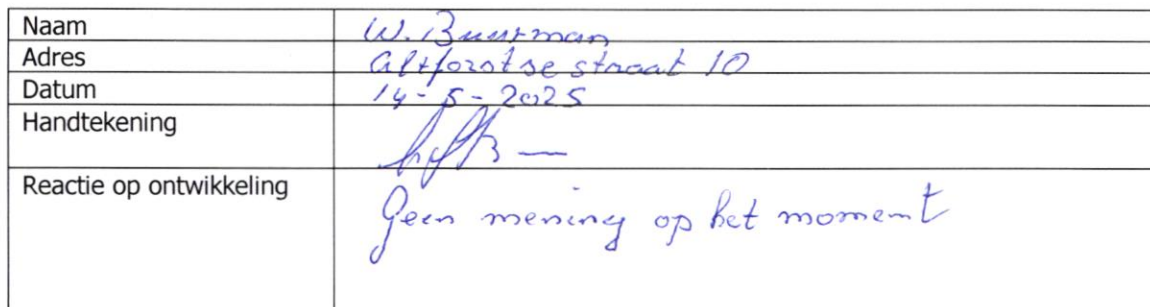 Naam W. Buurman
Adres Altforstse straat 10
Datum 14-5-2025
Handtekening
Reactie op ontwikkeling Geen mening op het moment